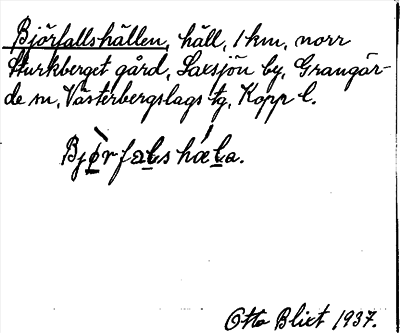 Björfallshällen, häll, 1 km, norr
Sturkberget gård, Saxsjön by, Grangär-
de sn, Västerbergslags tg, Kopp. l.
Bjò̱rfaḻshǽḻa.
Otto Blixt 1937.